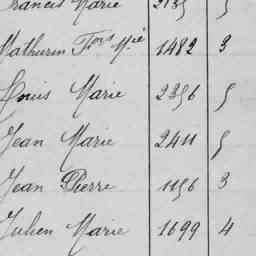 Francis Marie 2135 5
Mathurin Fçois Mie 1482 3
Louis Marie 2356 5
Jean Marie 2411 5
Jean Pierre 1156 3
Julien Marie 1699 4